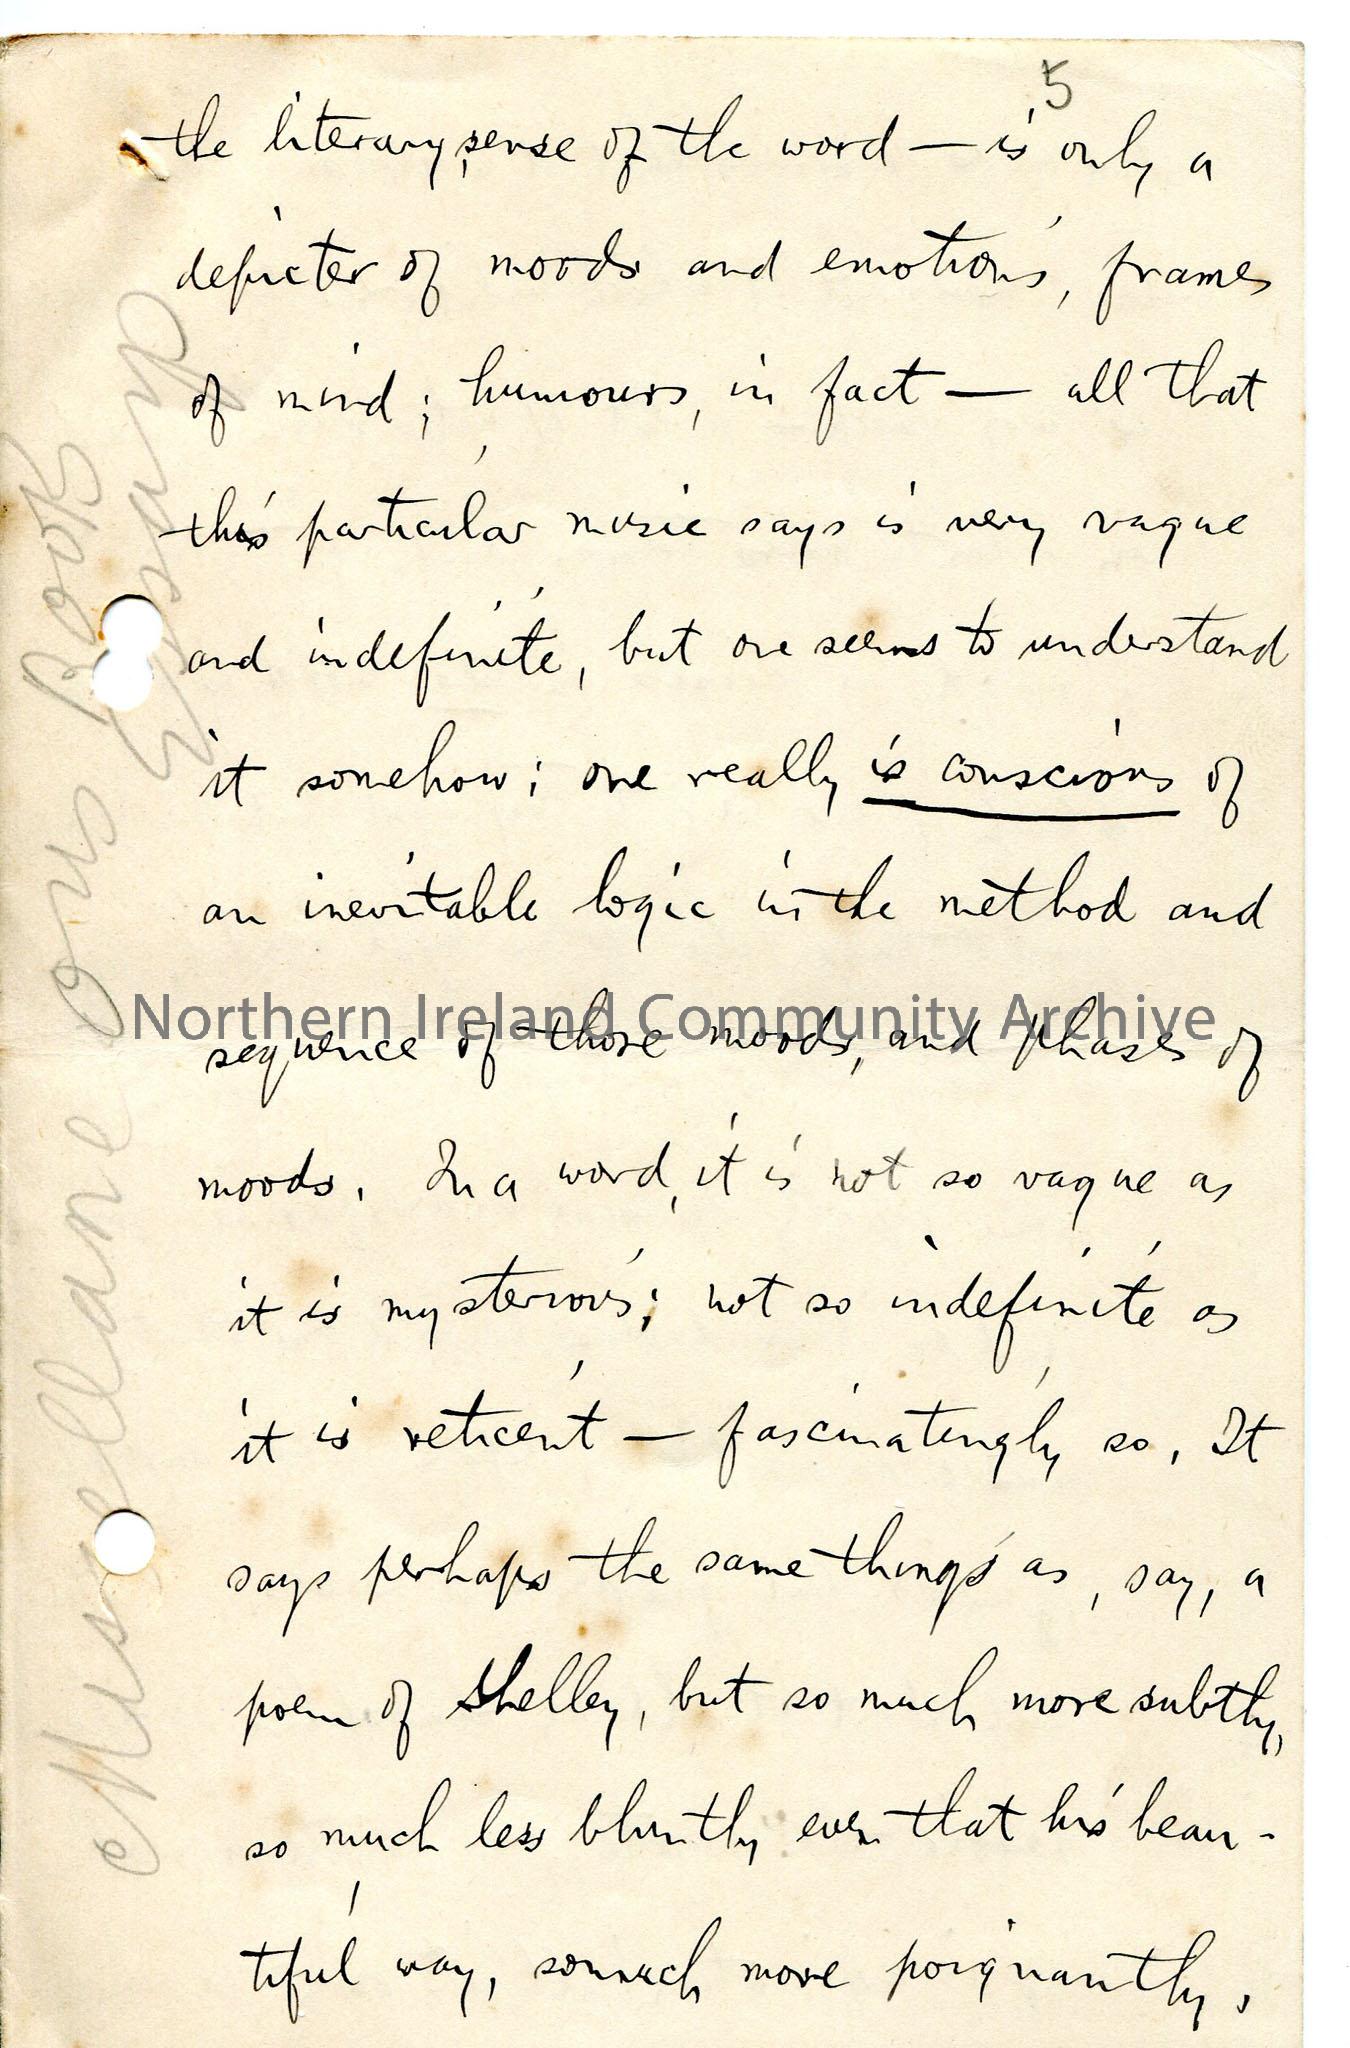 5
the literary, sense of the word — is only a
depicter of moods and emotions, frames
of mind; humours, in fact — all that
this particular music says is very vague
and indefinite, but one seems to understand
it somehow; one really is conscious of
an inevitable logic in the method and
sequence of those moods, and phases of
moods. In a word, it is not so vague as
it is mysterious; not so indefinite as
it is reticent — fascinatingly so. It
says perhaps the same things as, say, a
poem of Shelley, but so much more subtly,
so much less bluntly even that his beau-
tiful way, so much more poignantly,
Miscellaneous Book
Essays
Northern Ireland Community Archive